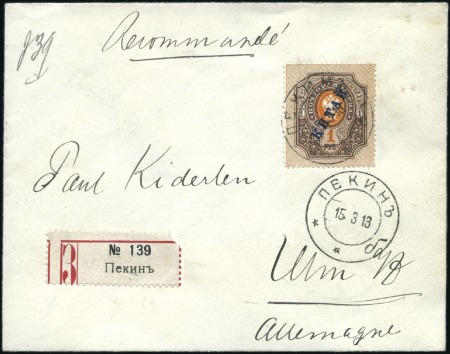 139
Recommandé
КИТАЙ
1
Paul Kiderlen
ПЕКИНЪ
15 3 13
№ 139
З
Пекинъ
Ulm
Allemagne